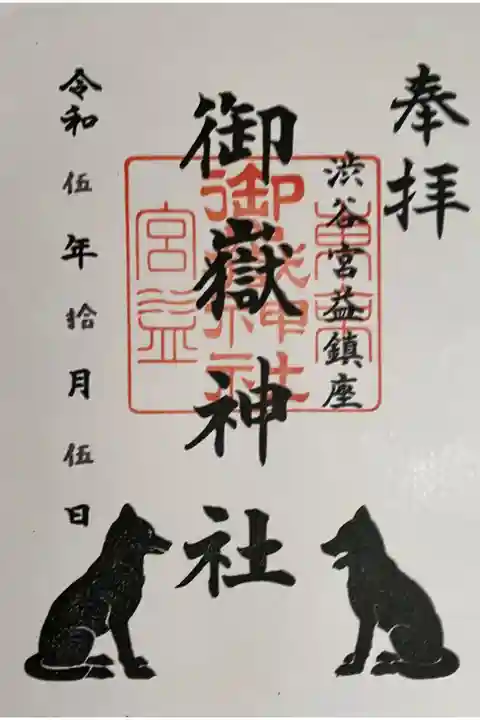 奉拝
渋谷宮益鎮座
御嶽神社
令和伍年拾月伍日
東京
御嶽神社
宮益